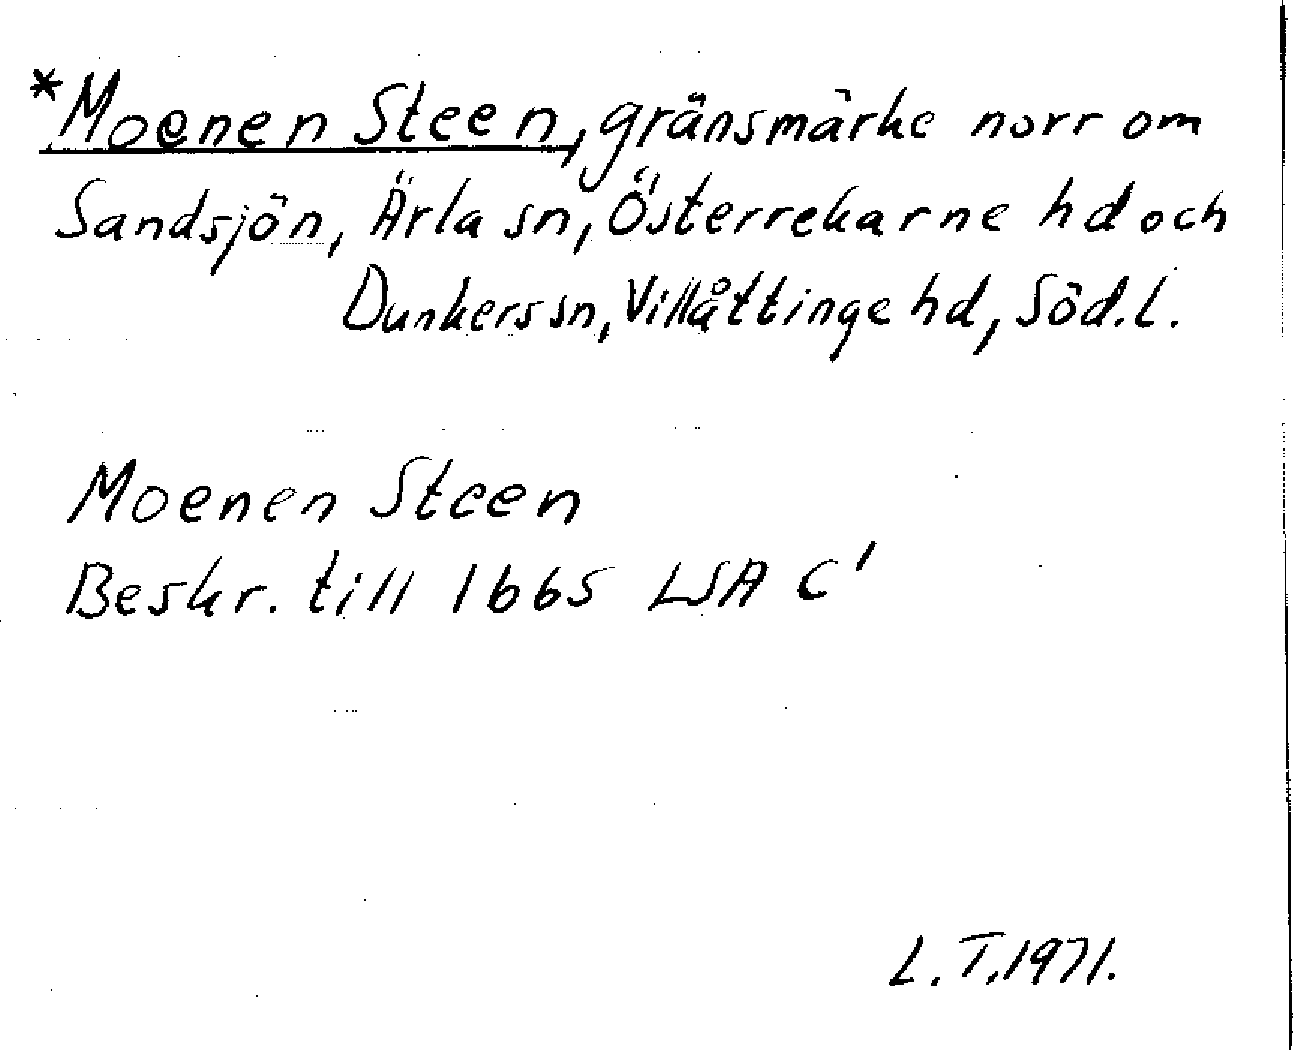 *Moenen Steen, gränsmärke norr om
Sandsjön, Ärla sn, Österrekarne hd och
Dunkers sn, Villåttinge hd, Söd.l.
Moenen Steen
Beskr. till 1665 LSA C'
L.T.1971.